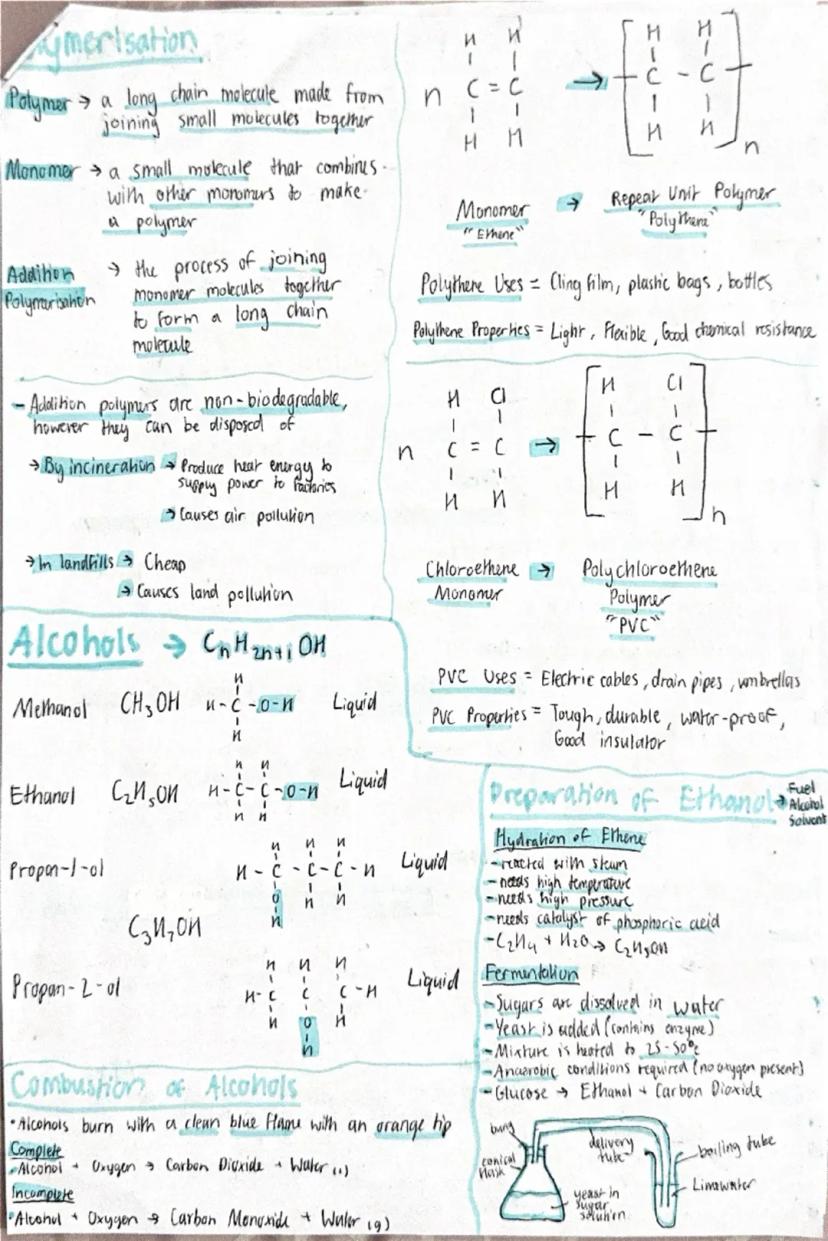 ymerisation
Polymer → a long chain molecule made from
joining small molecules together
Monomer → a small molecule that combines
with other monomers to make
a polymer
Addition → the process of joining
Polymerisation monomer molecules together
to form a long chain
molecule
- Addition polymers are non-biodegradable,
however they can be disposed of
→ By incineration → Produce heat energy to
supply power to factories
→ Causes air pollution
→ In landfills → Cheap
→ Causes land pollution
H H
n C = C → [ C - C ] n
H H
Monomer → Repeat Unit Polymer
"Ethene" "Polythene"
Polythene Uses = Cling film, plastic bags, bottles
Polythene Properties = Light, Flexible, Good chemical resistance
H Cl H Cl
n C = C → [ C - C ] n
H H H H
Chloroethene → Polychloroethene
Monomer Polymer
"PVC"
PVC Uses = Electric cables, drain pipes, umbrellas
PVC Properties = Tough, durable, water-proof,
Good insulator
Alcohols → CnH2n+1OH
Methanol CH3OH H-C-O-H Liquid
Ethanol C2H5OH H-C-C-O-H Liquid
Propan-1-ol H-C-C-C-H Liquid
C3H7OH
Propan-2-ol H-C C C-H Liquid
Combustion of Alcohols
• Alcohols burn with a clean blue flame with an orange tip
Complete
• Alcohol + Oxygen → Carbon Dioxide + Water (l)
Incomplete
• Alcohol + Oxygen → Carbon Monoxide + Water (g)
Preparation of Ethanol → Fuel
Alcohol
Solvent
Hydration of Ethene
- reacted with steam
- needs high temperature
- needs high pressure
- needs catalyst of phosphoric acid
- C2H4 + H2O → C2H5OH
Fermentation
- Sugars are dissolved in water
- Yeast is added (contains enzyme)
- Mixture is heated to 25-50°c
- Anaerobic conditions required (no oxygen present)
- Glucose → Ethanol + Carbon Dioxide
bung
delivery tube
boiling tube
conical flask
Limewater
yeast in
sugar
solution